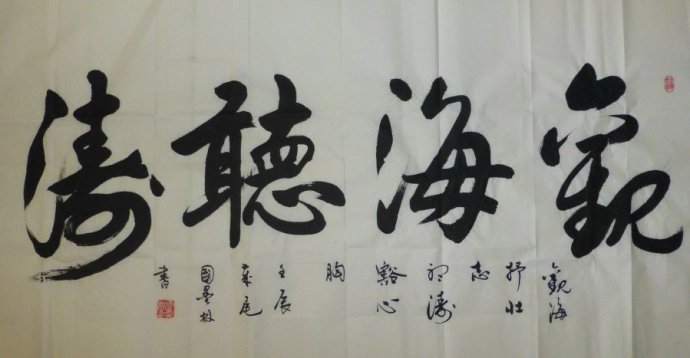 觀海聽濤
觀海
抒壯
志
聽濤
豁心
胸
壬辰
歲尾
國
書